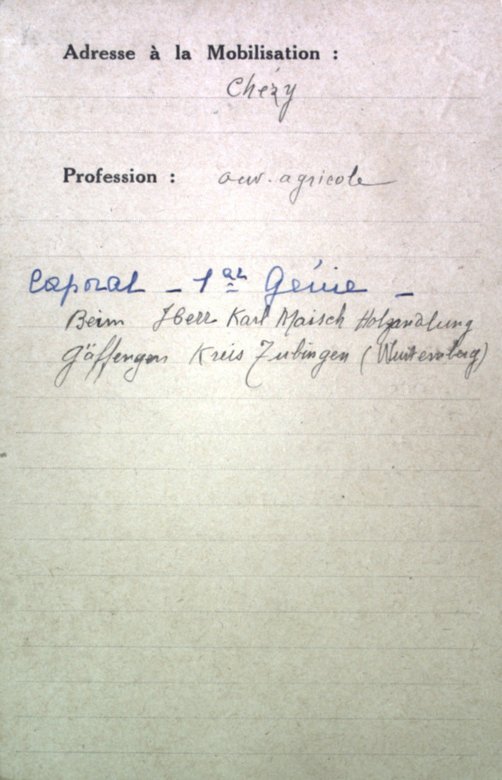 Adresse à la Mobilisation :
Chézy
Profession : ouv. agricole
Caporal - 1er Génie -
Beim Herr Karl Maisch Holzandlung
Gäffengen Kreis Tubingen (Wurtemberg)